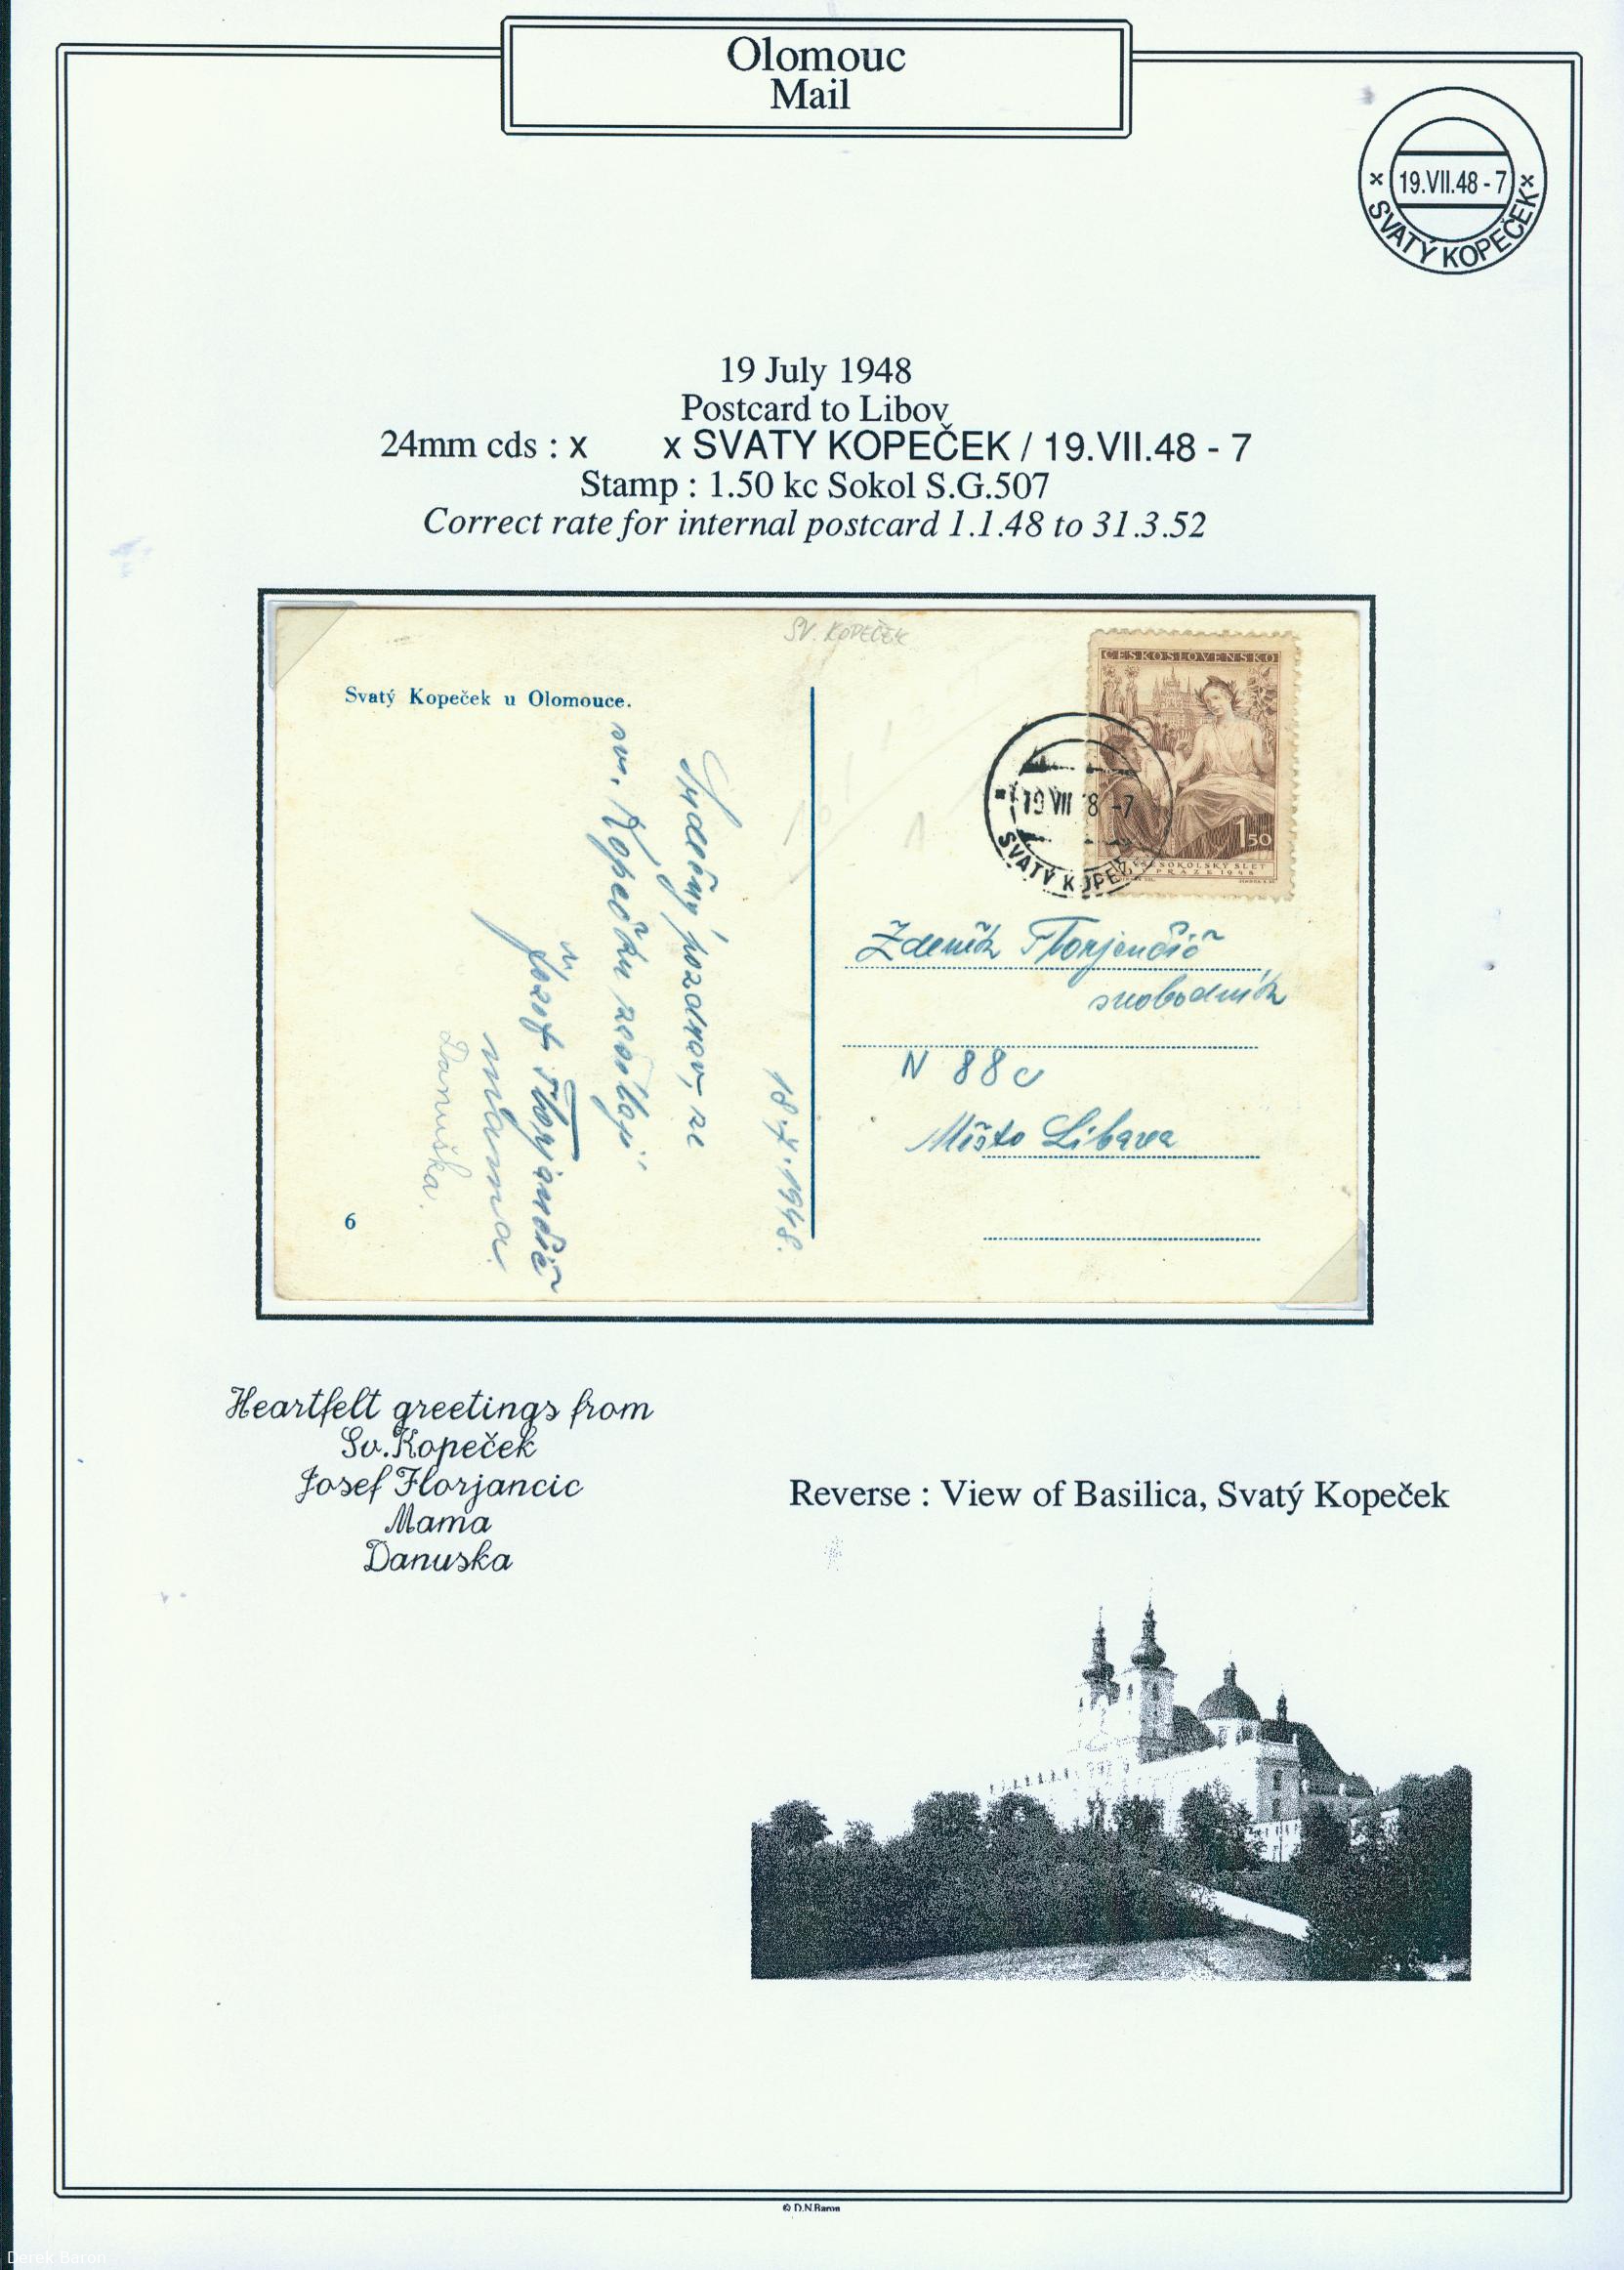 Olomouc
Mail
19.VII.48 - 7
x SVATÝ KOPEČEK x
19 July 1948
Postcard to Libov
24mm cds : x x SVATY KOPEČEK / 19.VII.48 - 7
Stamp : 1.50 kc Sokol S.G.507
Correct rate for internal postcard 1.1.48 to 31.3.52
SV. KOPEČEK
ČESKOSLOVENSKO
1 50
SOKOLSKÝ SLET
PRAZE 1948
19 VII 8 -7
SVATÝ KOPEČ
Svatý Kopeček u Olomouce.
18.7.1948.
Srdečný pozdrav ze
sv. Kopečku
Josef Florjančič
máma.
Danuška.
6
Zdeněk Florjančič
svobodník
N 88 c
Město Libava
Heartfelt greetings from
Sv.Kopeček
Josef Florjancic
Mama
Danuska
Reverse : View of Basilica, Svatý Kopeček
© D.N.Baron
Derek Baron